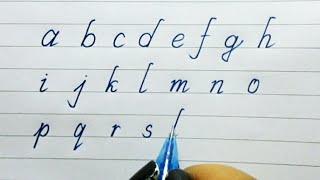 a b c d e f g h
i j k l m n o
p q r s